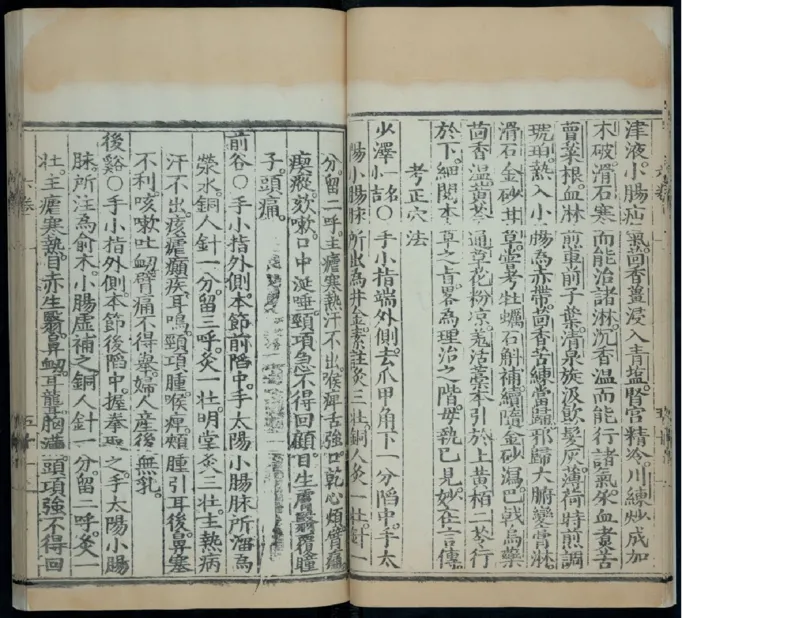 津液。小腸疝氣茴香薑浸入青塩。腎宮精冷。川練炒成加
木破滑石寒而能治諸淋。沉香温而能行諸氣。尿血煮苦
蕒菜根。血淋煎車前子葉。清泉旋汲飲髮灰。薄荷時煎調
琥珀。熱入小腸為赤帶。茴香苦練當歸邪歸大腑變膏淋。
滑石金砂甘草嘗考牡蠣石斛補續隨金砂瀉。巴戟烏藥
茴香温黄芩通草花粉凉。羗活藁本引於上黄栢二苓行
於下。細閲本草之旨。畧為理治之階。毋執已見。妙在言傳。
考正穴法
少澤一名小吉〇手小指端外側。去爪甲角下一分䧟中。手太
陽小腸脉所出為井金。素註灸三壯。銅人灸一壯。針一
分。留二呼。主瘧寒熱汗不出。喉痺舌強口乾心煩臂痛。
瘈瘲。欬嗽。口中涎唾。頸項急不得回顧。目生膚翳覆瞳
子。頭痛。
前谷〇手小指外側本節前䧟中。手太陽小腸脉所溜為
滎水。銅人針一分。留三呼。灸一壯。明堂灸三壯。主熱病
汗不出。痎瘧癲疾。耳鳴。頸項腫。喉痺。頰腫引耳後。鼻塞
不利。咳嗽。吐衂。臂痛不得舉。婦人産後無乳。
後谿〇手小指外側本節後䧟中。握拳取之。手太陽小腸
脉。所注為俞木。小腸虛補之。銅人針一分。留二呼。灸一
壯。主瘧寒熱。目赤生翳。鼻衂。耳聾。胸滿。頭項強不得回